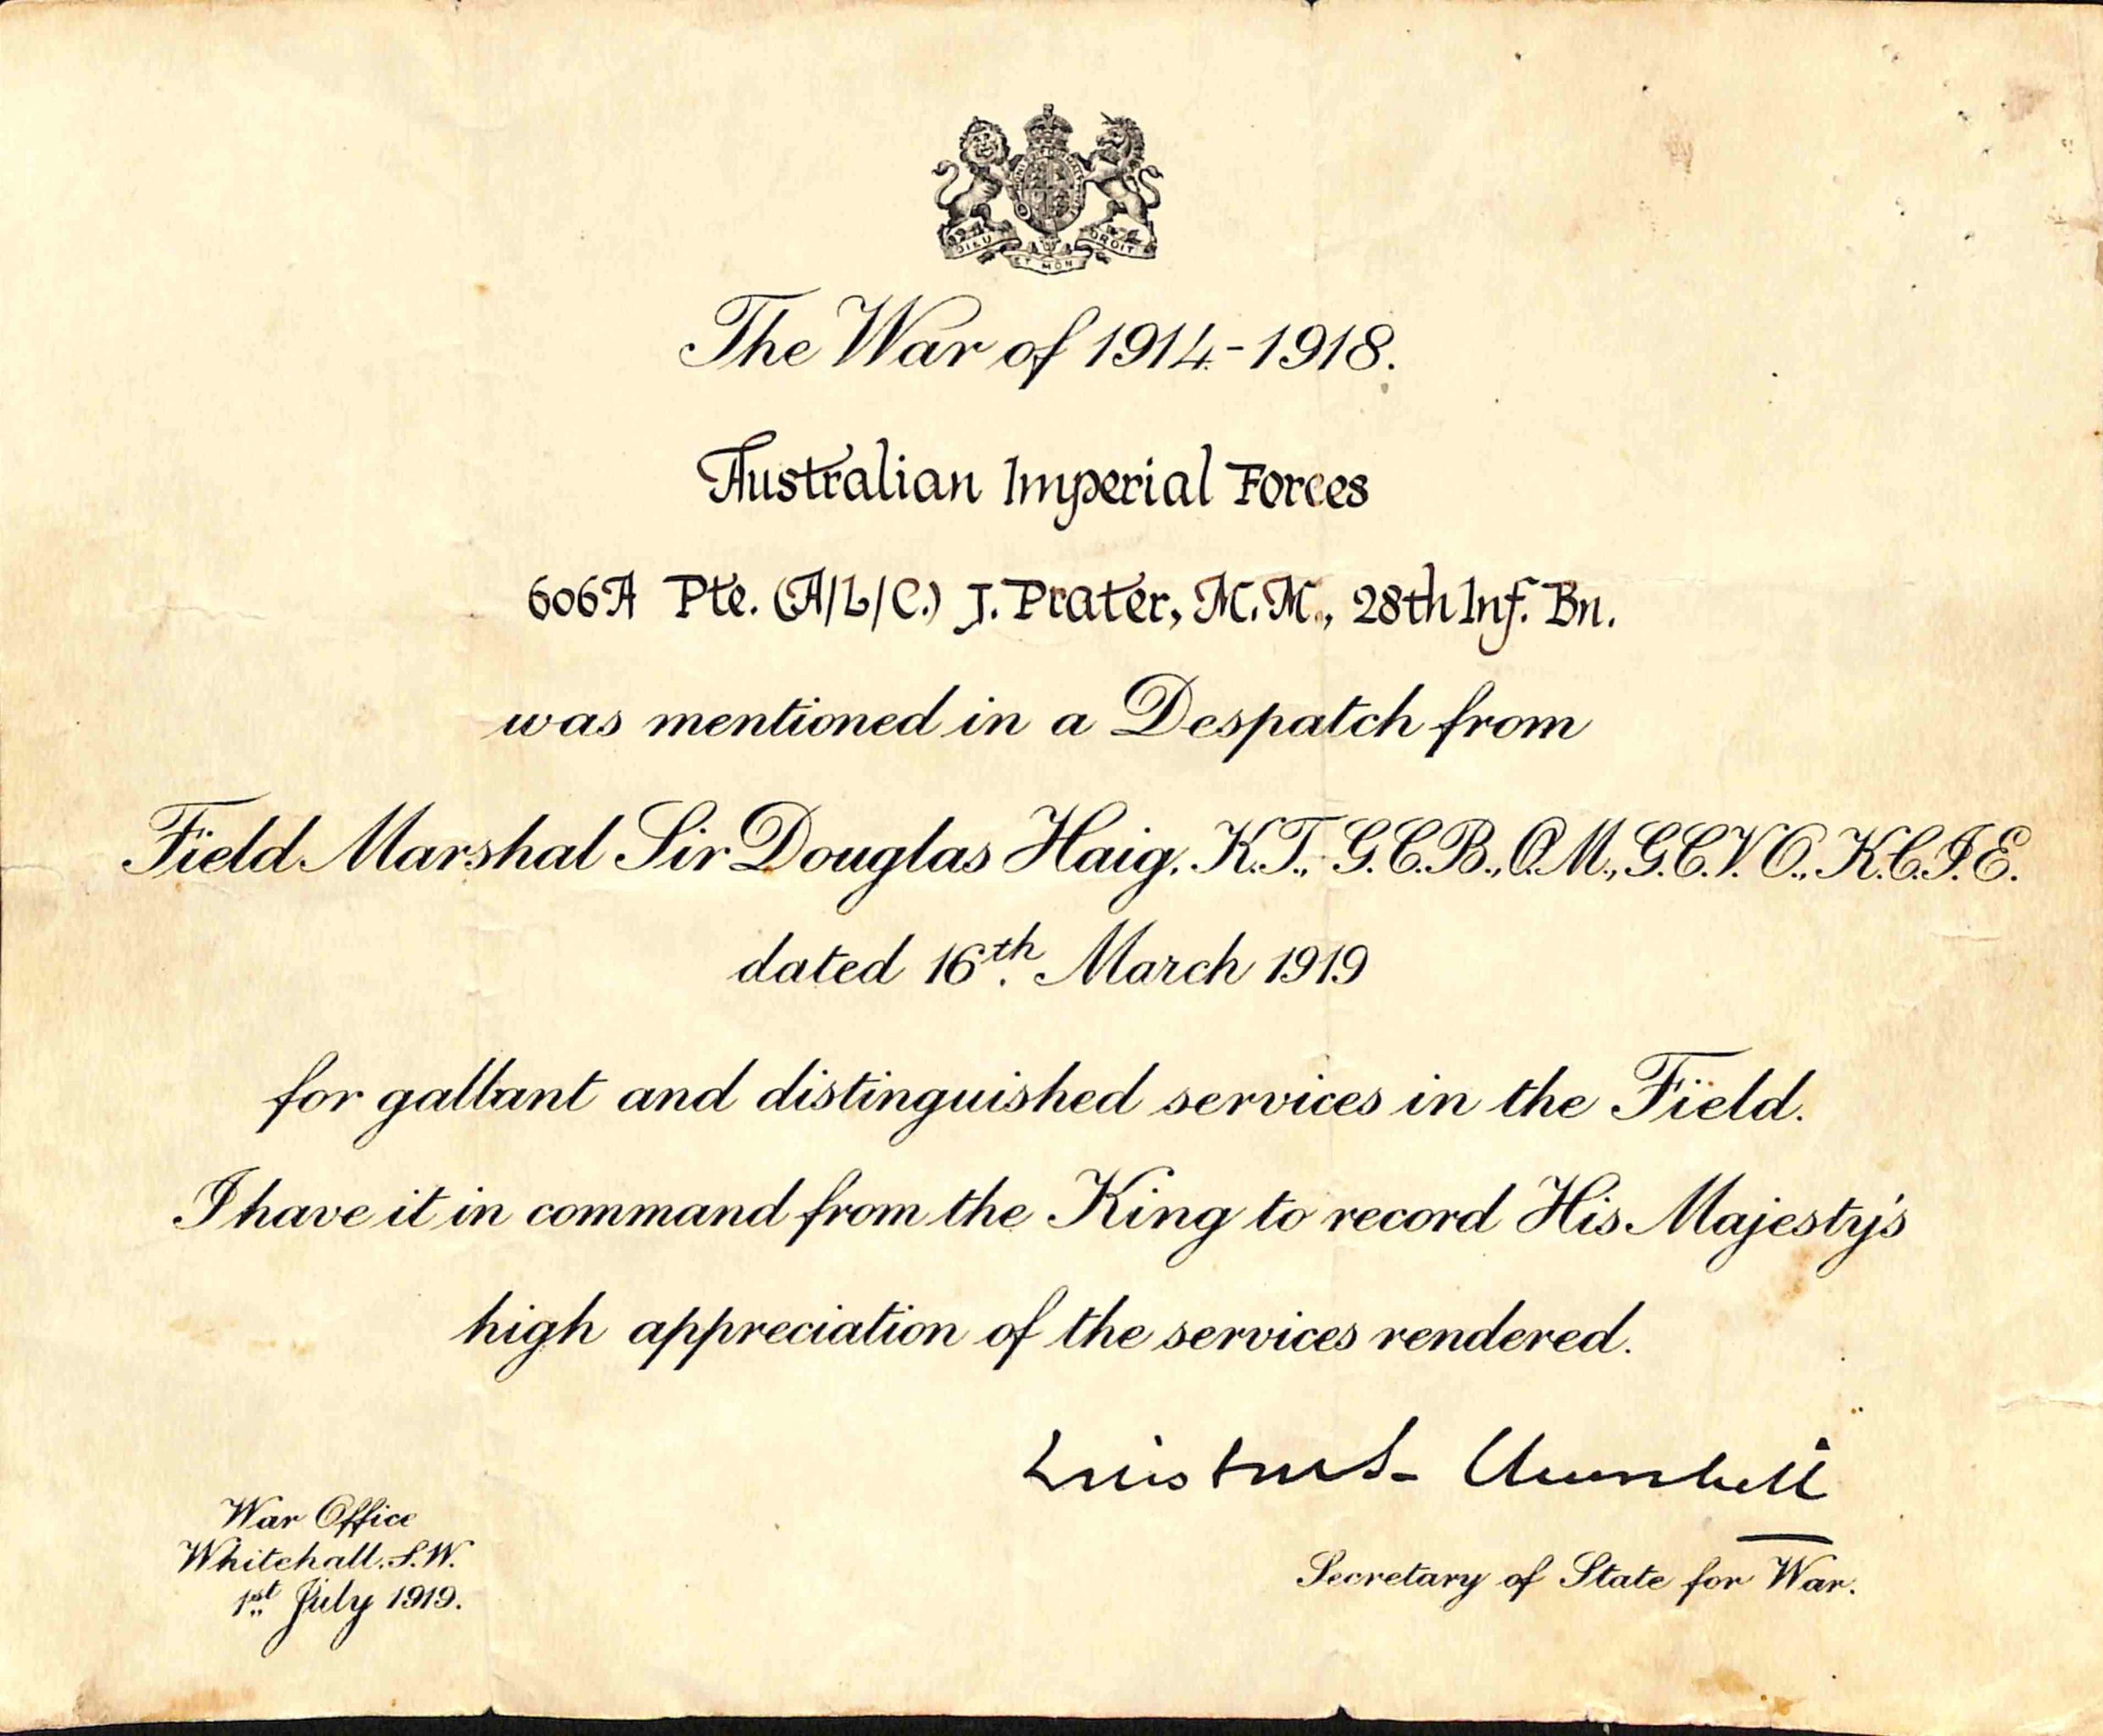 DIEU ET MON DROIT
The War of 1914-1918.
Australian Imperial Forces
606A Pte. (A/L/C.) J. Prater, M.M., 28th Inf. Bn.
was mentioned in a Despatch from
Field Marshal Sir Douglas Haig, K.T., G.C.B., O.M., G.C.V.O., K.C.I.E.
dated 16th. March 1919
for gallant and distinguished services in the Field.
I have it in command from the King to record His Majesty's
high appreciation of the services rendered.
Winston S. Churchill
War Office
Whitehall. S.W.
1st July 1919.
Secretary of State for War.